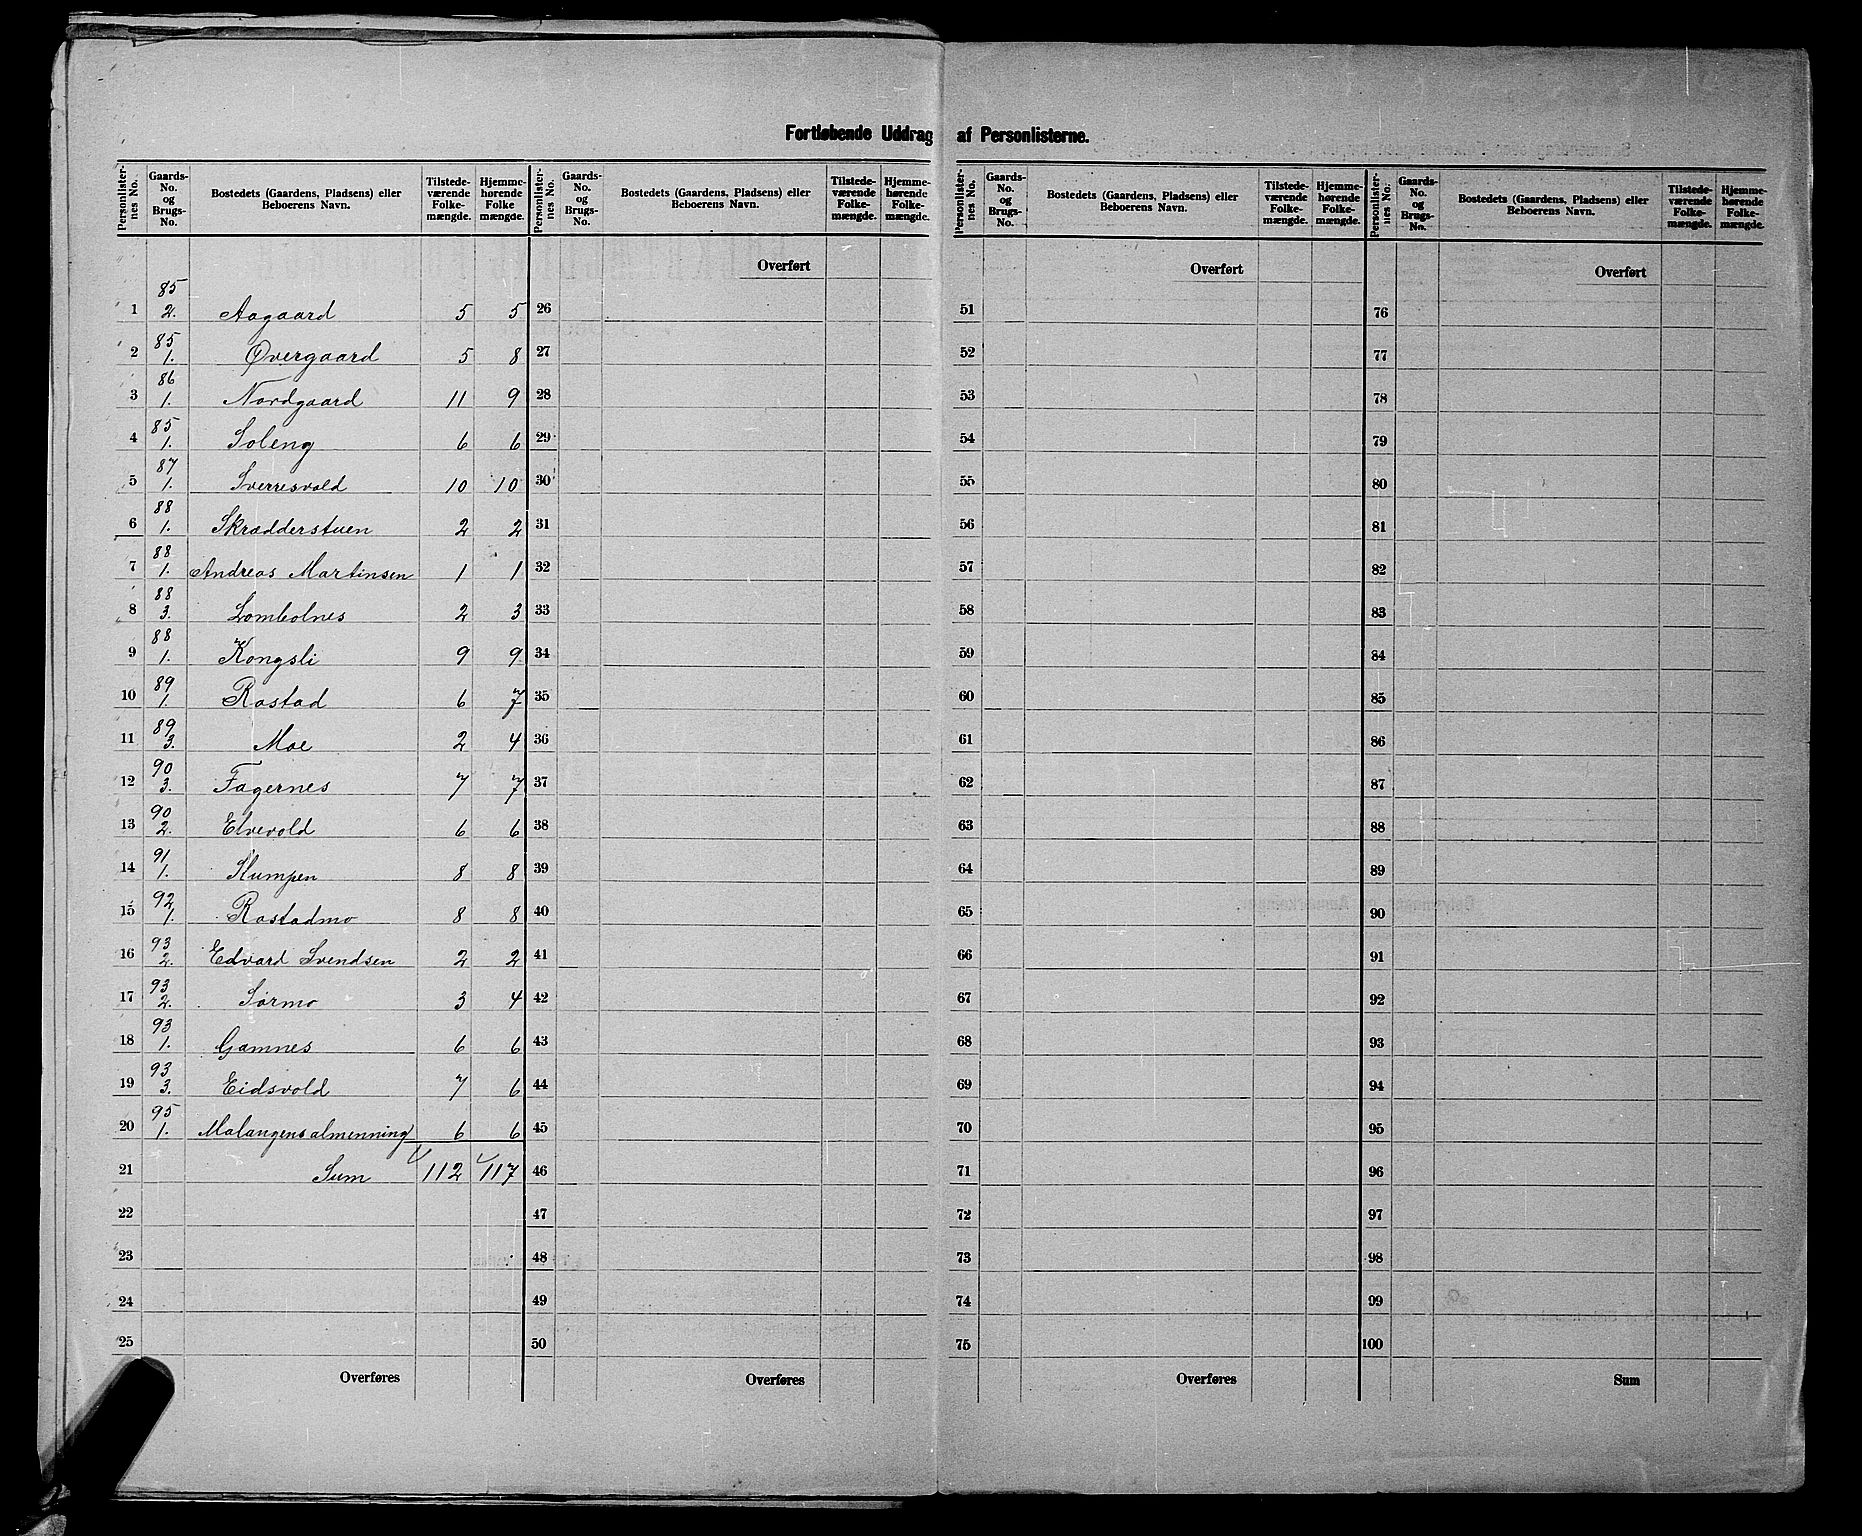 Fortløbende Uddrag af Personlisterne.
Personlisternes No. | Gaards-No. og Brugs-No. | Bostedets (Gaardens, Pladsens) eller Beboerens Navn. | Tilstedeværende Folkemængde. | Hjemmehørende Folkemængde.
1 | 85 2. | Aagaard | 5 | 5
2 | 85 1. | Øvergaard | 5 | 8
3 | 86 1. | Nordgaard | 11 | 9
4 | 85 1. | Soleng | 6 | 6
5 | 87 1. | Sverresvold | 10 | 10
6 | 88 1. | Skrædderstuen | 2 | 2
7 | 88 1. | Andreas Martinsen | 1 | 1
8 | 88 3. | Lombolnes | 2 | 3
9 | 88 1. | Kongsli | 9 | 9
10 | 89 1. | Rostad | 6 | 7
11 | 89 3. | Moe | 2 | 4
12 | 90 3. | Fagernes | 7 | 7
13 | 90 2. | Elvevold | 6 | 6
14 | 91 1. | Kumpen | 8 | 8
15 | 92 1. | Rostadmo | 8 | 8
16 | 93 2. | Edvard Svendsen | 2 | 2
17 | 93 2. | Sørmo | 3 | 4
18 | 93 1. | Gamnes | 6 | 6
19 | 93 3. | Eidsvold | 7 | 6
20 | 95 1. | Malangensalmenning | 6 | 6
21 | Sum | 112 | 117
22
23
24
25
Overføres
Personlisternes No. | Gaards-No. og Brugs-No. | Bostedets (Gaardens, Pladsens) eller Beboerens Navn. | Tilstedeværende Folkemængde. | Hjemmehørende Folkemængde.
Overført
26
27
28
29
30
31
32
33
34
35
36
37
38
39
40
41
42
43
44
45
46
47
48
49
50
Overføres
Personlisternes No. | Gaards-No. og Brugs-No. | Bostedets (Gaardens, Pladsens) eller Beboerens Navn. | Tilstedeværende Folkemængde. | Hjemmehørende Folkemængde.
Overført
51
52
53
54
55
56
57
58
59
60
61
62
63
64
65
66
67
68
69
70
71
72
73
74
75
Overføres
Personlisternes No. | Gaards-No. og Brugs-No. | Bostedets (Gaardens, Pladsens) eller Beboerens Navn. | Tilstedeværende Folkemængde. | Hjemmehørende Folkemængde.
Overført
76
77
78
79
80
81
82
83
84
85
86
87
88
89
90
91
92
93
94
95
96
97
98
99
100
Sum